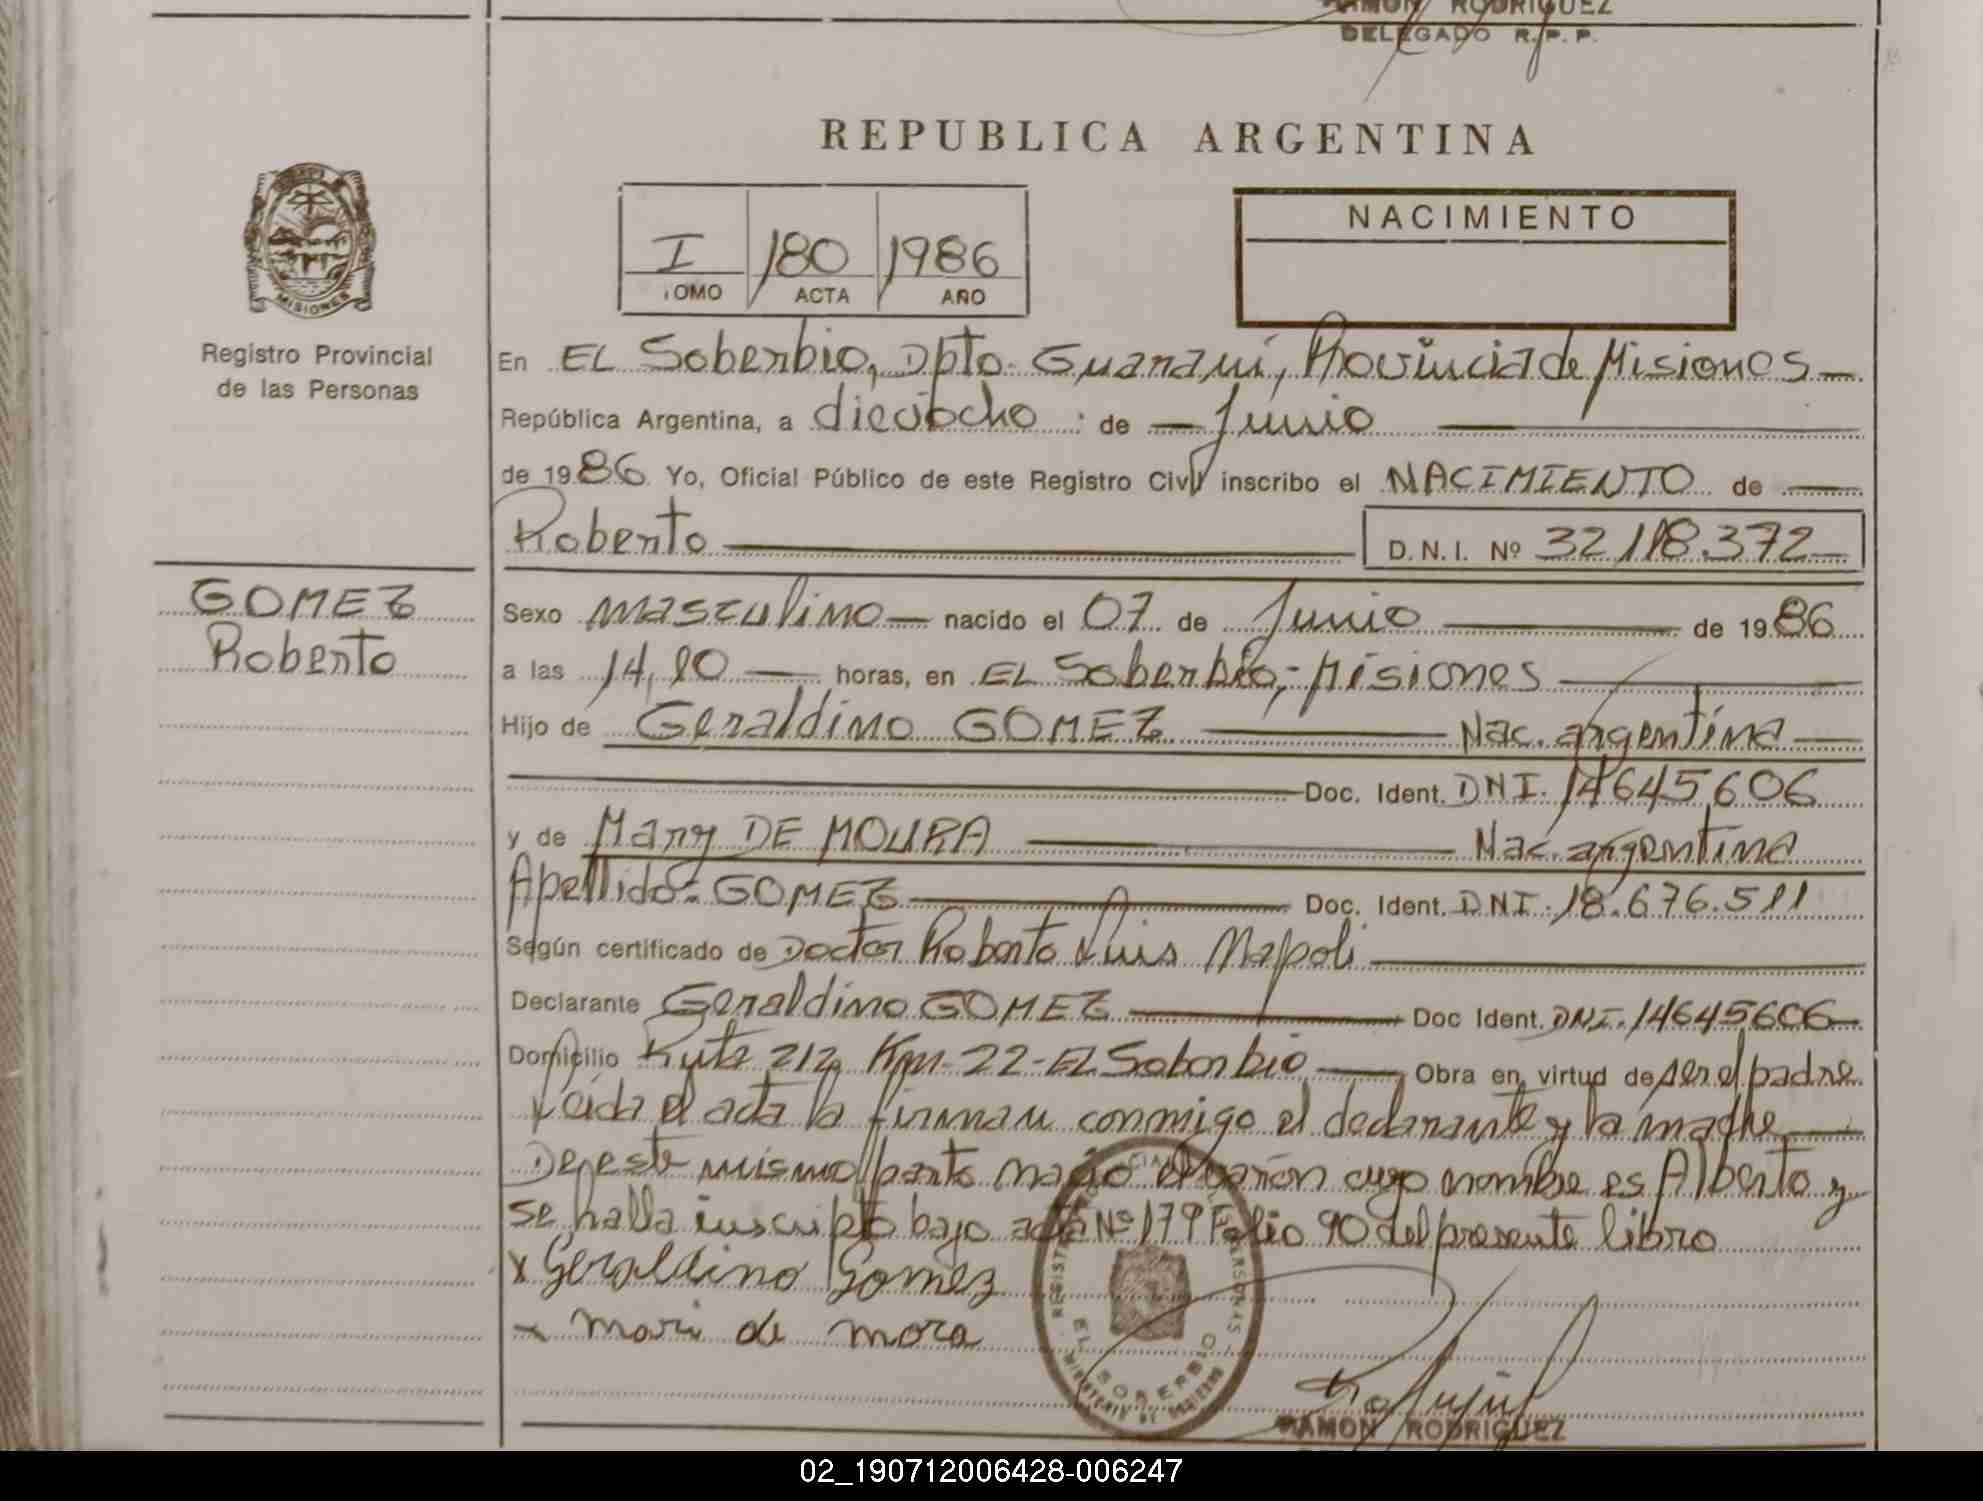 RAMON RODRIGUEZ
DELEGADO R.P.P.
REPUBLICA ARGENTINA
MISIONES
Registro Provincial
de las Personas
I 180 1986
TOMO ACTA AÑO
NACIMIENTO
En EL Soberbio, Dpto. Guaraní, Provincia de Misiones
República Argentina, a dieciocho de Junio
de 1986 Yo, Oficial Público de este Registro Civil inscribo el NACIMIENTO de
Roberto D.N.I. Nº 32118.372
GOMEZ
Roberto
Sexo masculino nacido el 07 de Junio de 1986
a las 14,10 horas, en EL Soberbio,- Misiones
Hijo de Geraldino GOMEZ Nac. argentina
Doc. Ident. DNI. 14645606
y de Mary DE MOURA Nac. argentina
Apellido: GOMEZ Doc. Ident. DNI. 18.676.511
Según certificado de Doctor Roberto Luis Napoli
Declarante Geraldino GOMEZ Doc Ident. DNI. 14645606
Domicilio Ruta 212 Km-22-EL Soberbio Obra en virtud de ser el padre
Leida el acta la firman conmigo el declarante y la madre
De este mismo parto nació el varón cuyo nombre es Alberto y
se halla inscripto bajo acta Nº 179 Folio 90 del presente libro
x Geraldino Gomez
x mari de mora
EL SOBERBIO
RAMON RODRIGUEZ
02_190712006428-006247